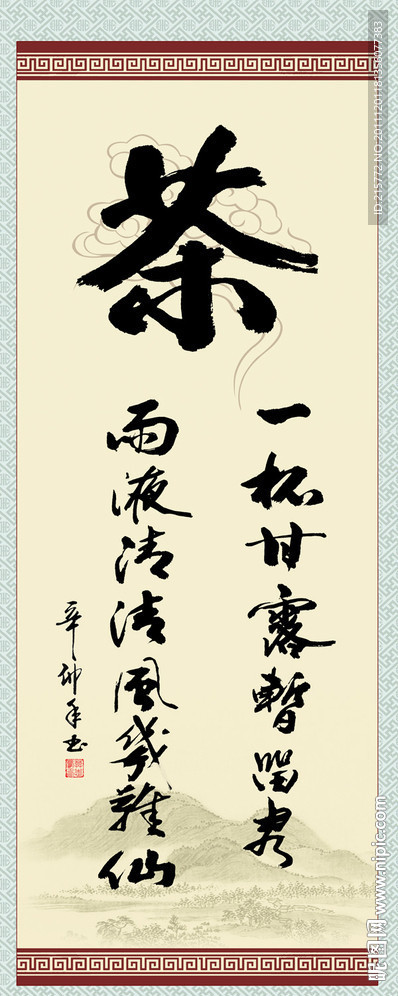 茶
一杯甘露暫留客
雨液清清風幾仙
辛卯年书
ID:215772 NO:20111201181351077383
昵图网 www.nipic.com